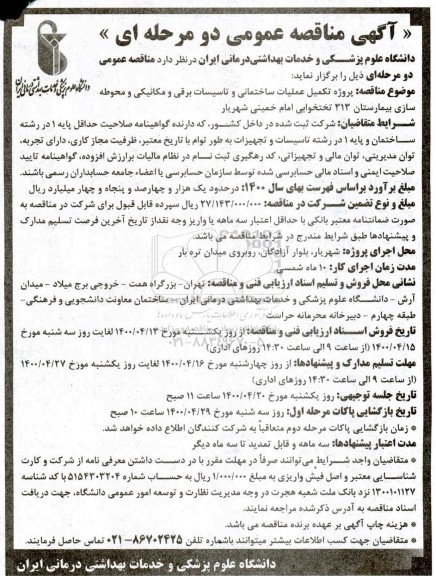 « آگهی مناقصه عمومی دو مرحله ای »
دانشگاه علوم پزشکی و خدمات بهداشتی درمانی ایران
دانشگاه علوم پزشکی و خدمات بهداشتی‌درمانی ایران درنظر دارد مناقصه عمومی
دو مرحله‌ای ذیل را برگزار نماید:
موضوع مناقصه: پروژه تکمیل عملیات ساختمانی و تاسیسات برقی و مکانیکی و محوطه
سازی بیمارستان ۳۱۳ تختخوابی امام خمینی شهریار
شرایط متقاضیان: شرکت ثبت شده در داخل کشور، که دارنده گواهینامه صلاحیت حداقل پایه ۱ در رشته
ساختمان و پایه ۱ در رشته تاسیسات و تجهیزات به طور توام با تاریخ معتبر، ظرفیت مجاز کاری، دارای تجربه،
توان مدیریتی، توان مالی و تجهیزاتی، کد رهگیری ثبت نام در نظام مالیات برارزش افزوده، گواهینامه تایید
صلاحیت ایمنی و اسناد مالی حسابرسی شده توسط سازمان حسابرسی یا اعضاء جامعه حسابداران رسمی باشند.
مبلغ برآورد براساس فهرست بهای سال ۱۴۰۰: درحدود یک هزار و چهارصد و پنجاه و چهار میلیارد ریال
مبلغ و نوع تضمین شرکت در مناقصه: ۲۷/۱۴۳/۰۰۰/۰۰۰ ریال سپرده قابل قبول برای شرکت در مناقصه به
صورت ضمانتنامه معتبر بانکی با حداقل اعتبار سه ماهه یا واریز وجه نقداز تاریخ آخرین فرصت تسلیم مدارک
و پیشنهادها طبق شرایط مندرج در شرایط مناقصه می باشد.
محل اجرای پروژه: شهریار، بلوار آزادگان، روبروی میدان تره بار
مدت زمان اجرای کار: ۱۰ ماه شمسی
نشانی محل فروش و تسلیم اسناد ارزیابی فنی و مناقصه: تهران - بزرگراه همت - خروجی برج میلاد - میدان
آرش - دانشگاه علوم پزشکی و خدمات بهداشتی درمانی ایران - ساختمان معاونت دانشجویی و فرهنگی-
طبقه چهارم - دبیرخانه محرمانه حراست
تاریخ فروش اسناد ارزیابی فنی و مناقصه: از روز یکشنبه مورخ ۱۴۰۰/۰۴/۱۳ لغایت روز سه شنبه مورخ
۱۴۰۰/۰۴/۱۵ (از ساعت ۹ الی ساعت ۱۴:۳۰ روزهای اداری)
مهلت تسلیم مدارک و پیشنهادها: از روز چهارشنبه مورخ ۱۴۰۰/۰۴/۱۶ لغایت روز یکشنبه مورخ ۱۴۰۰/۰۴/۲۷
(از ساعت ۹ الی ساعت ۱۴:۳۰ روزهای اداری)
تاریخ جلسه توجیهی: روز یکشنبه مورخ ۱۴۰۰/۰۴/۲۰ ساعت ۱۱ صبح
تاریخ بازگشایی پاکات مرحله اول: روز سه شنبه مورخ ۱۴۰۰/۰۴/۲۹ ساعت ۱۰ صبح
* زمان بازگشایی پاکات مرحله دوم متعاقباً به شرکت کنندگان اطلاع داده خواهد شد.
مدت اعتبار پیشنهادها: سه ماهه و قابل تمدید تا سه ماه دیگر
* متقاضیان واجد شرایط می‌توانند صرفاً در مهلت مقرر با در دست داشتن معرفی نامه از شرکت و کارت
شناسایی معتبر و اصل فیش واریزی به مبلغ ۱/۰۰۰/۰۰۰ ریال به حساب شماره ۵۱۵۴۳۰۳۲۰۴ با کد شناسه
۱۳۰۰۱۰۱۱۲۷ نزد بانک ملت شعبه هجرت در وجه مدیریت نظارت و توسعه امور عمومی دانشگاه، جهت دریافت
اسناد مناقصه به آدرس ذکرشده مراجعه نمایند.
* هزینه چاپ آگهی بر عهده برنده مناقصه می باشد.
* متقاضیان جهت کسب اطلاعات بیشتر میتوانند باشماره تلفن ۸۶۷۰۲۴۲۵-۰۲۱ تماس حاصل فرمایند.
دانشگاه علوم پزشکی و خدمات بهداشتی درمانی ایران